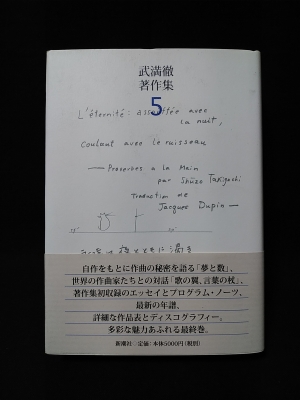 武満徹
著作集
5
L'éternité: assoiffée avec
la nuit,
coulant avec le ruisseau
— Proverbes à la Main
par Shûzo Takiguchi
Traduction de
Jacques Dupin —
自作をもとに作曲の秘密を語る「夢と数」、
世界の作曲家たちとの対話「歌の翼、言葉の杖」、
著作集初収録のエッセイとプログラム・ノーツ、
最新の年譜、
詳細な作品表とディスコグラフィー。
多彩な魅力あふれる最終巻。
新潮社/定価:本体5000円(税別)